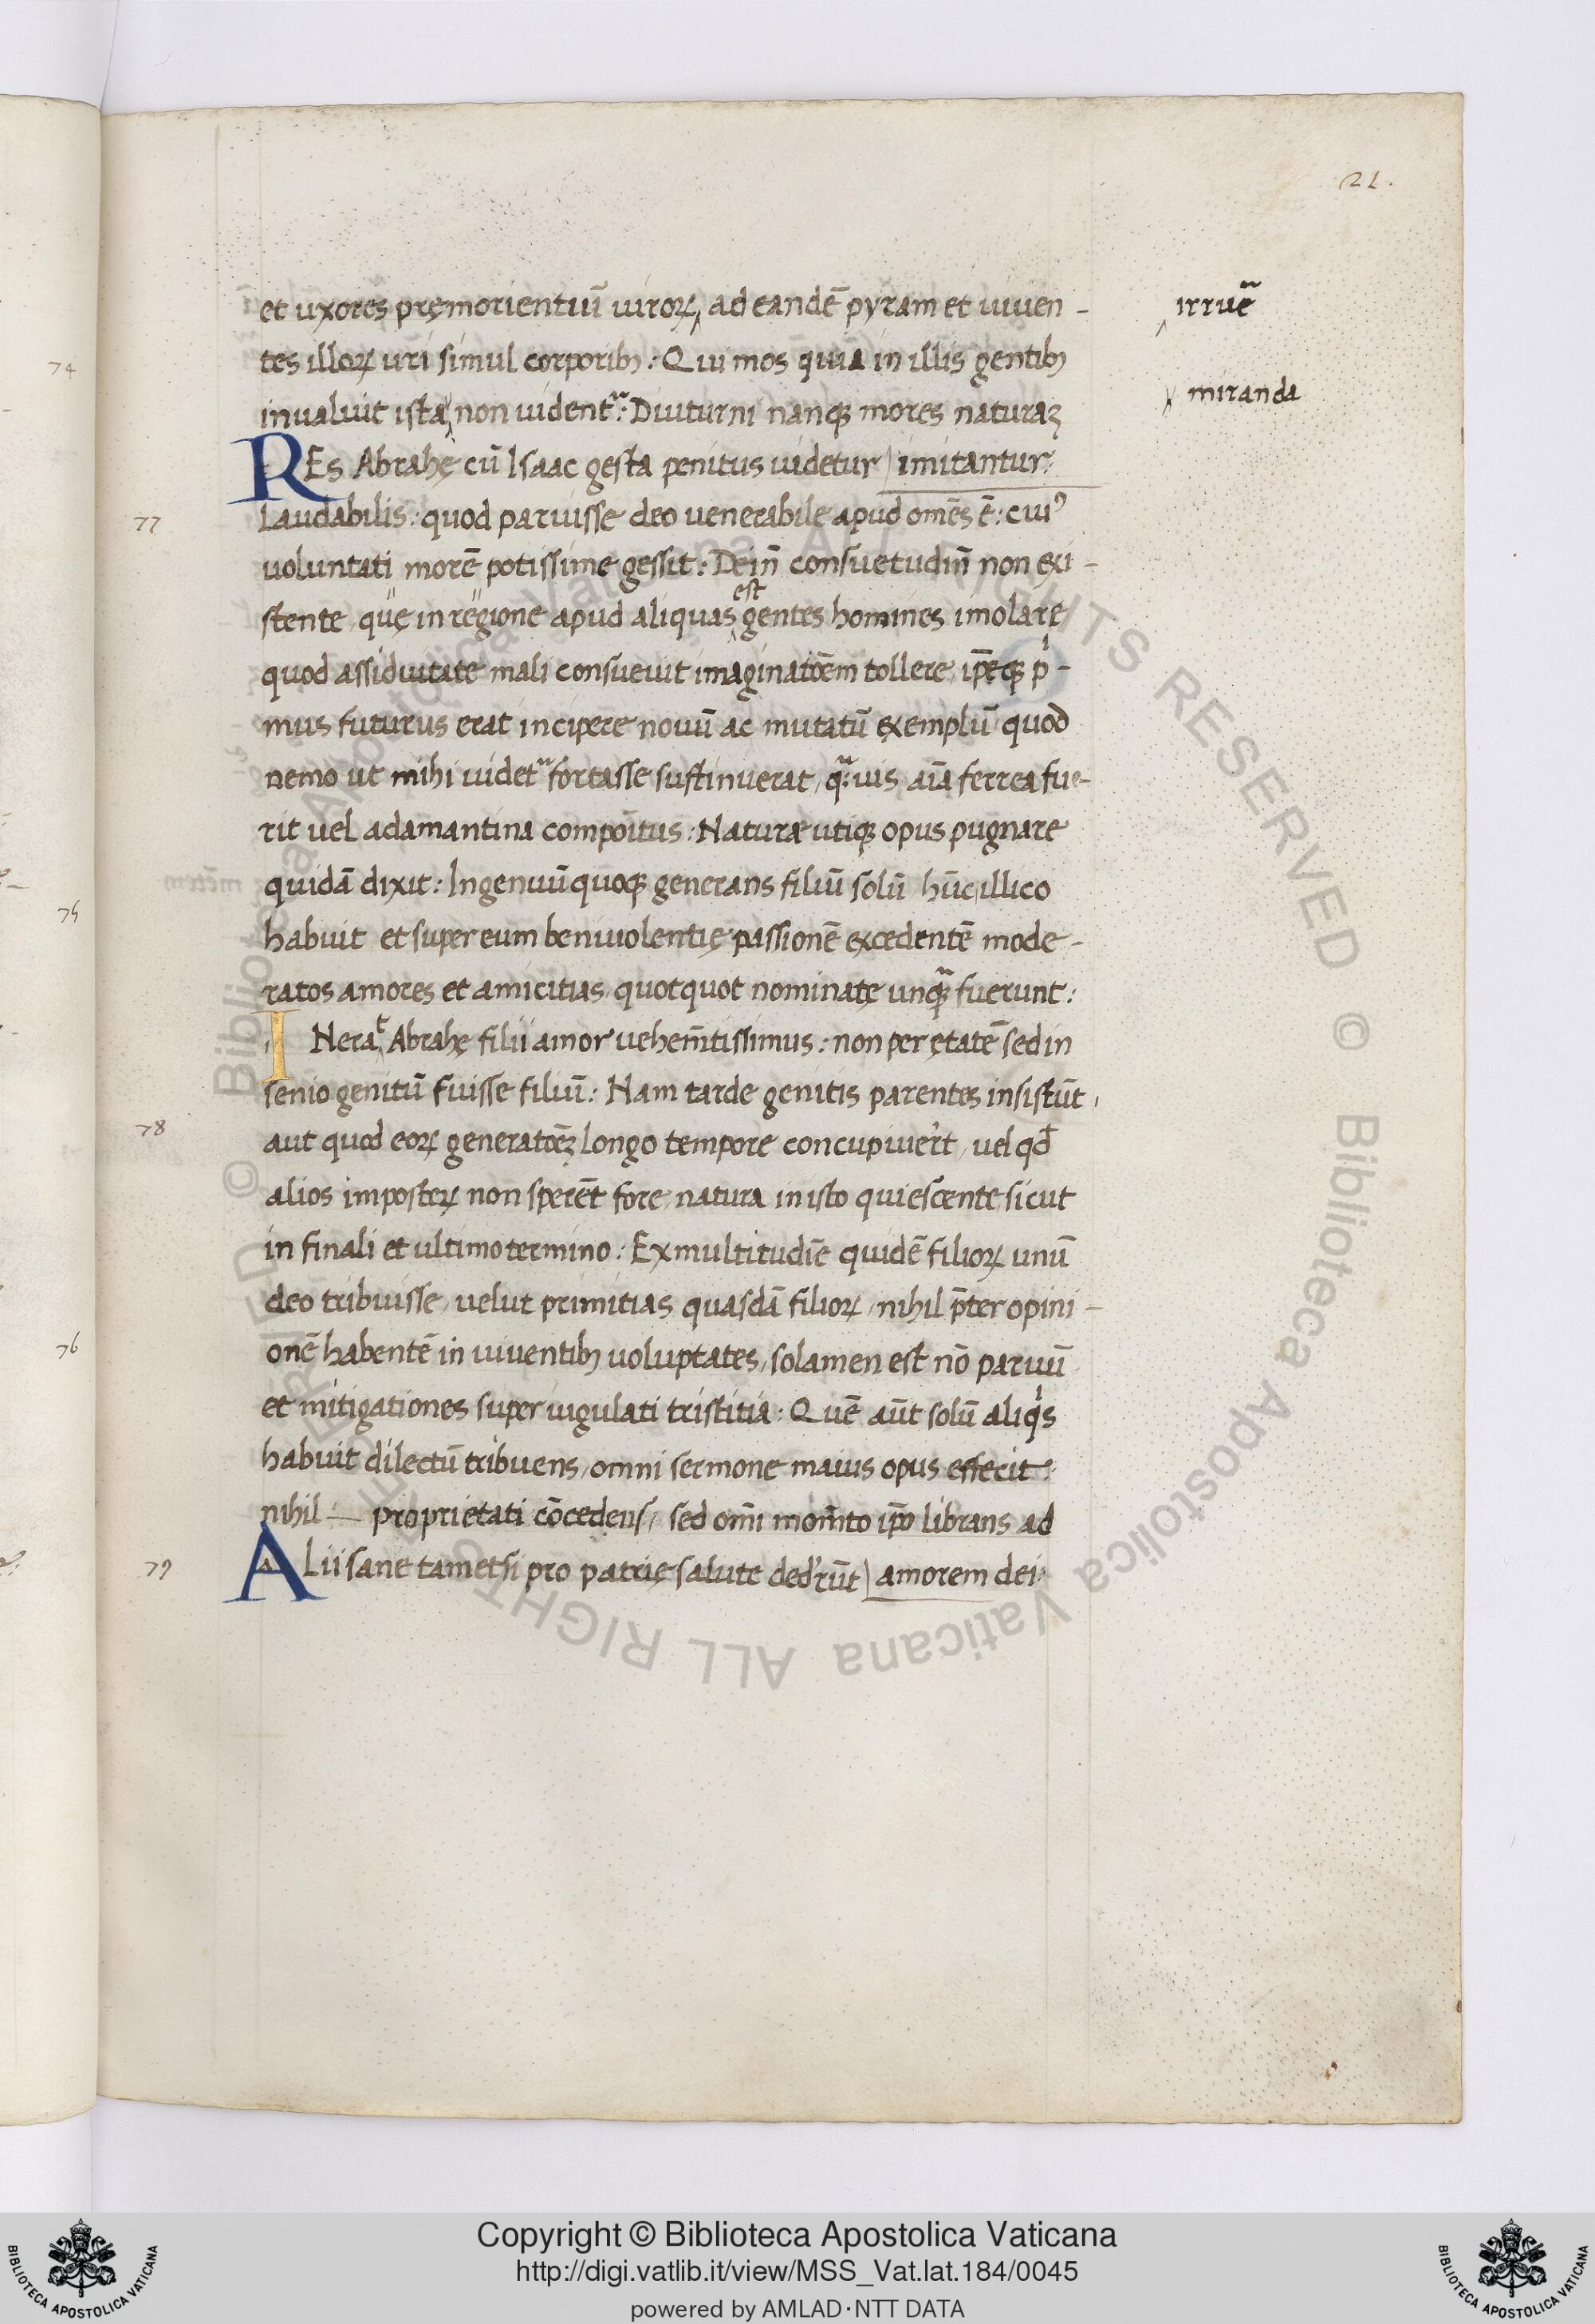 21.
et uxores pręmorientiū uiroꝝ ad eandē pyram et uiuen-
irruē
tes illoꝝ uri simul corporibꝫ: Qui mos quia in illis gentibꝫ
74
miranda
inualuit ista non uident: Diuturni nanqꝫ mores naturaꝫ
REs Abrahę cū Isaac gesta penitus uidetur imitantur:
Laudabilis: quod paruisse deo uenerabile apud om̄es ē: cuiꝰ
77
uoluntati morē potissime gessit: Dein̄ consuetudin̄ non exi-
est
stente quę in regione apud aliquas gentes homines imolare
quod assiduitate mali consueuit imaginatōem tollere, ip̄eqꝫ pⁱ-
mus futurus erat incipere nouū ac mutatū exemplū quod
nemo ut mihi uidet fortasse sustinuerat, q̄uis aīa ferrea fue-
rit uel adamantina compoītus: Naturæ utiqꝫ opus pugnare
quidā dixit: Ingenuū quoqꝫ generans filiū solū hūc illico
75
habuit et super eum beniuolentię passionē excedentē mode-
ratos amores et amicitias quotquot nominatę unqꝫ fuerunt:
INerat Abrahę filii amor uehem̄tissimus: non per ętatē sed in
senio genitū fuisse filiū: Nam tarde genitis parentes insistūt,
aut quod eoꝝ generatōeꝫ longo tempore concupiuer̄t, uel qd̄
78
alios imposteꝝ non sperēt fore, natura in isto quiescente, sicut
in finali et ultimo termino: Ex multitudīe quidē filioꝝ unū
deo tribuisse, uelut primitias quasdā filioꝝ, nihil p̄ter opini-
onē habentē in uiuentibꝫ uoluptates, solamen est nō paruū
76
et mitigationes super iugulati tristitia: Quē aūt solū aliqⁱs
habuit dilectū tribuens, omni sermone maius opus effecit:
nihil — proprietati cōcedens, sed om̄i mom̄to ip̄o librans ad
ALii sane tametsi pro patrię salute ded'rūt amorem dei:
79
Copyright © Biblioteca Apostolica Vaticana
http://digi.vatlib.it/view/MSS_Vat.lat.184/0045
powered by AMLAD·NTT DATA